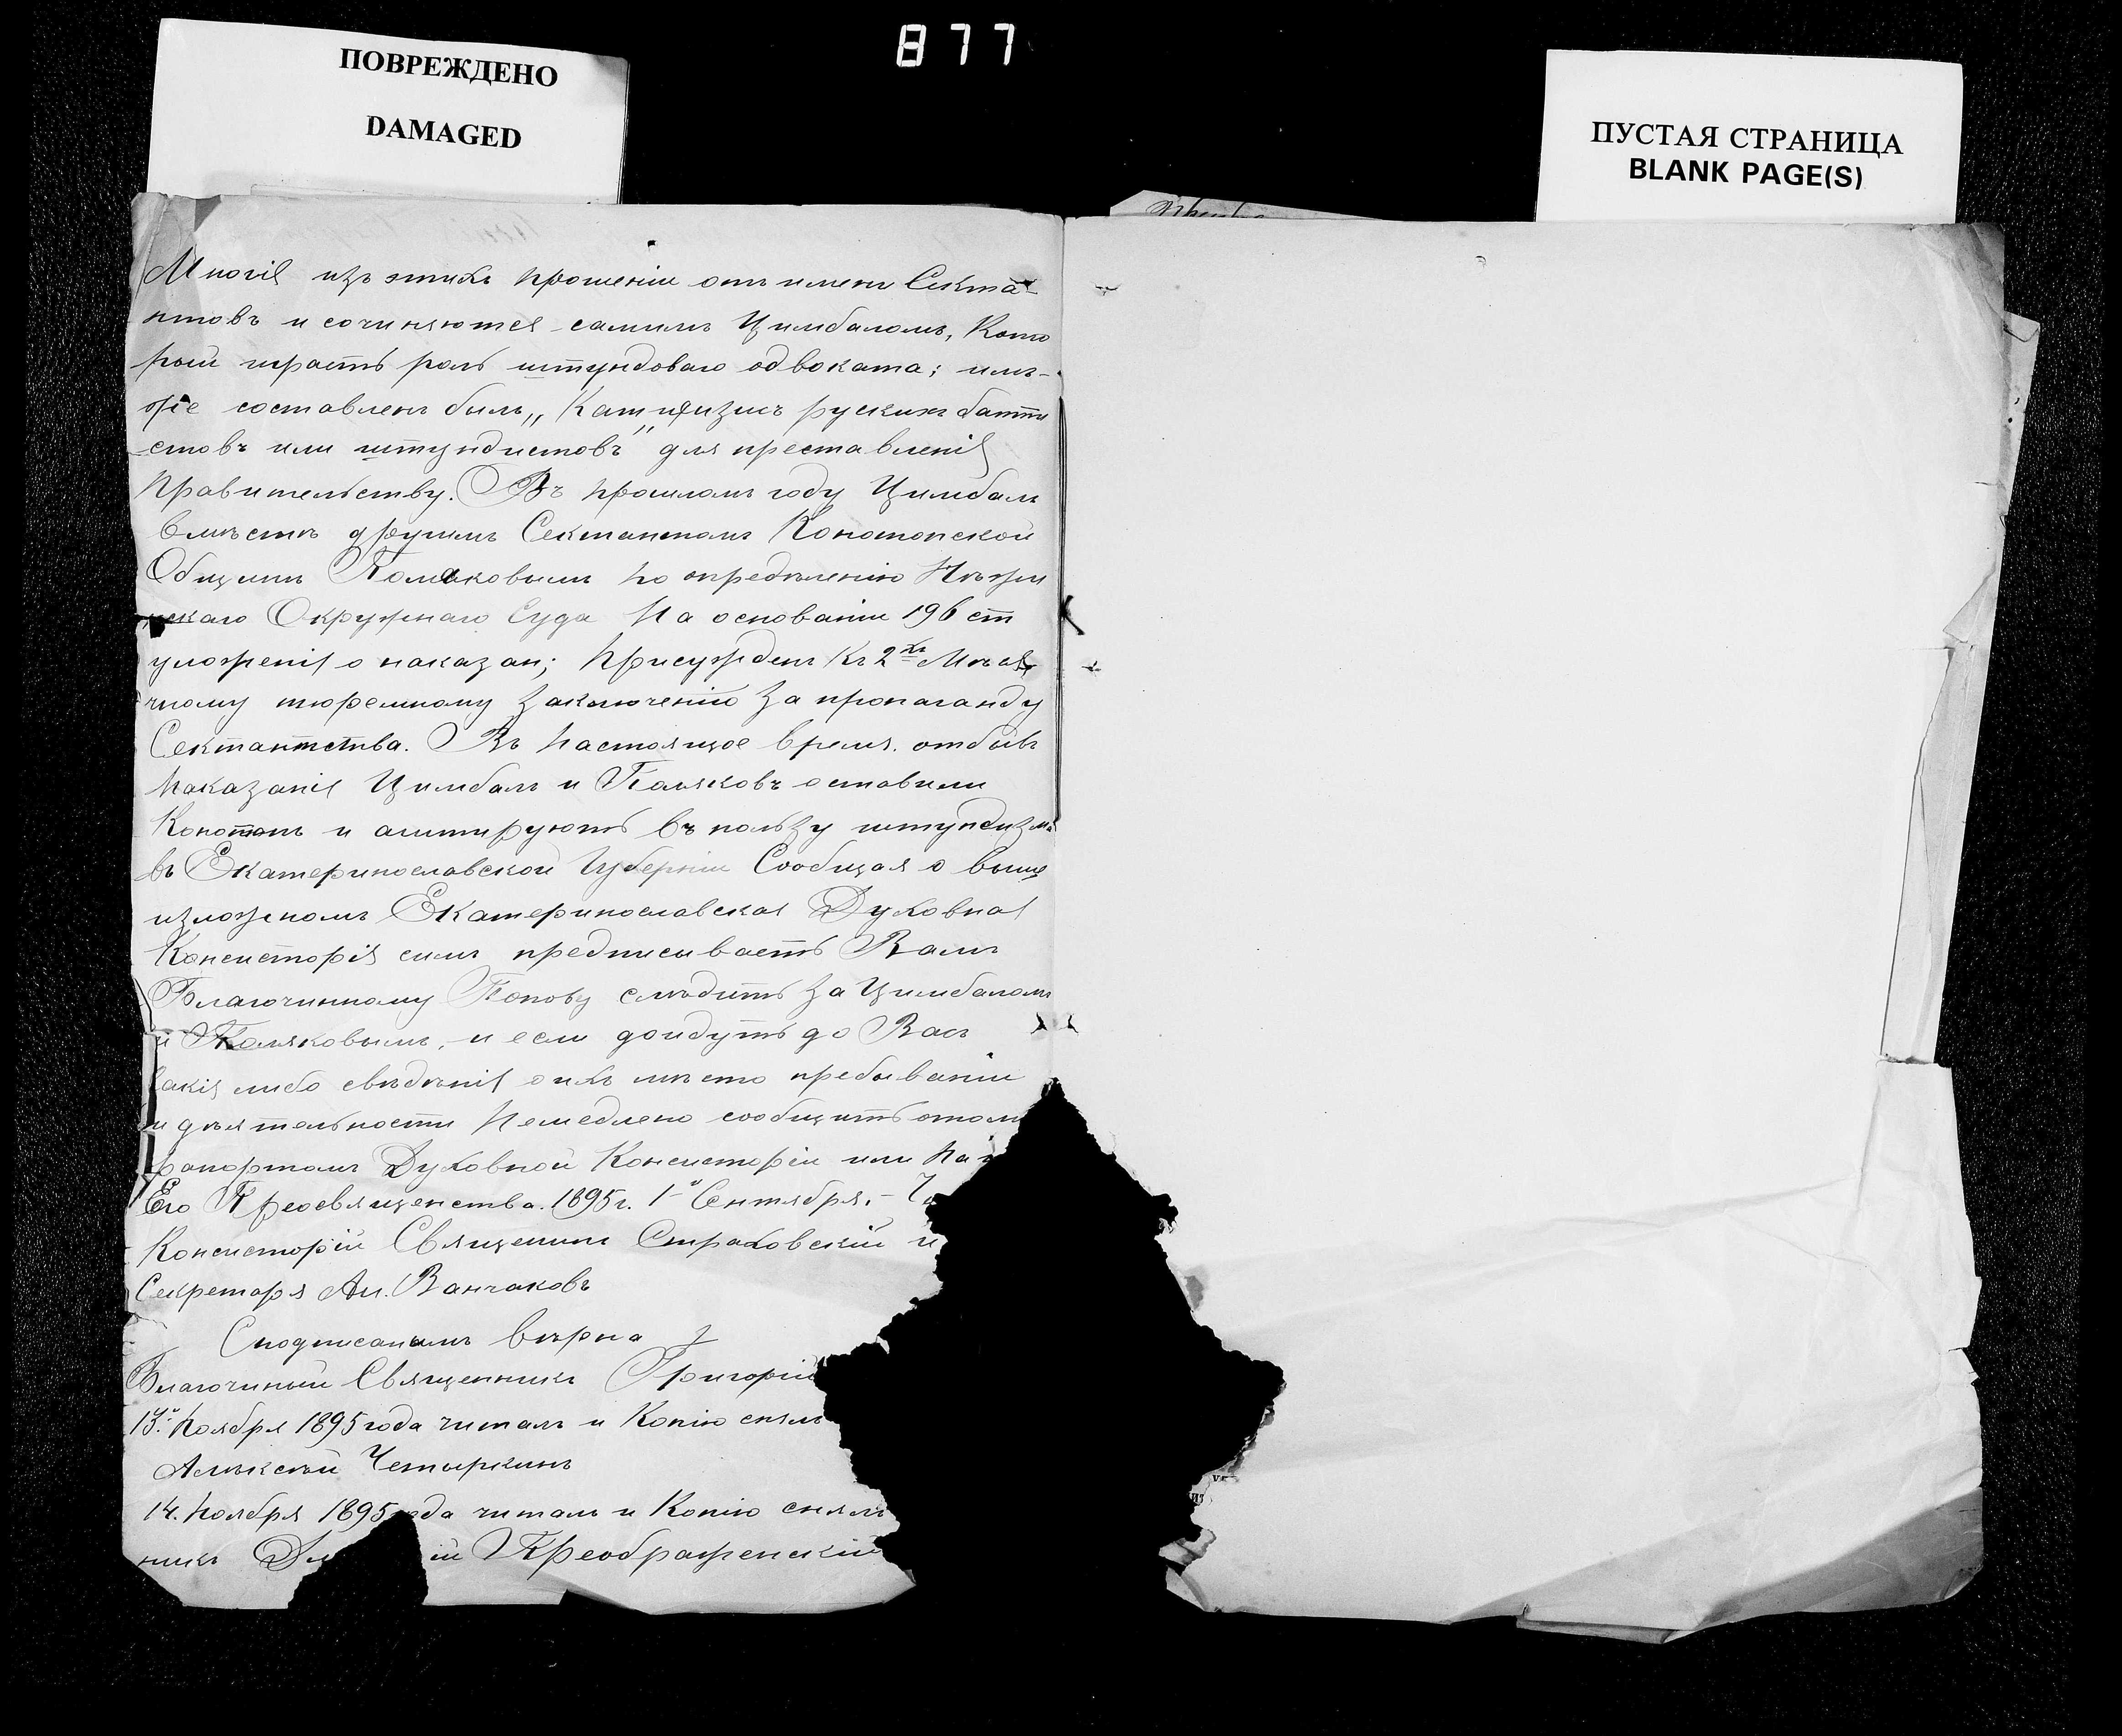 877
ПОВРЕЖДЕНО
DAMAGED
ПУСТАЯ СТРАНИЦА
BLANK PAGE(S)
Многія изъ этихъ прошеніи отъ имени Секта-
нтовъ и сочиняются самимъ Цимбаломъ, Кото
рый играетъ роль штундоваго одвоката; имъ-
же составленъ былъ „Катихизисъ рускихъ бапти
стовъ или штундистовъ" для преставленія
Правительству. Въ прошломъ году Цимбалъ
вмѣстѣ другимъ Сектантомъ Конотопской
Общины Поляковымъ по опредѣленію Нѣжи
нскаго Окружнаго Суда На основаніи 196 ст
уложенія о наказан; Присужденъ Къ 2хъ Мѣся
чному тюремному Заключенію За пропаганду
Сектантства. Въ Настоящое время. отбывъ
Наказанія Цимбалъ и Поляковъ оставили
Конотопъ и агитируютъ въ пользу штундизма
въ Екатеринославской Губерніи Сообщая о выше
изложеномъ Екатеринославская Духовная
Консисторія симъ предписываетъ Вамъ
Благочинному Попову слѣдить За Цимбаломъ
и Поляковымъ, и если дойдутъ до Васъ
какія либо свѣдѣнія о ихъ мѣсто пребываніи
и дѣятельности Немедлено сообщить отомъ
рапортомъ Духовной Консисторіи или На
Его Преосвященства. 1895 г. 1го Сентября. – Ч
Консисторіи Священикъ Страховскій и
Секретарь Ал. Ванчаковъ
Сподписанымъ вѣрна
Благочиный Священникъ Григорій
13го Ноября 1895 года читалъ и Копію снялъ
Алѣксѣй Четыркинъ
14. Ноября 1895 года читалъ и Копію снялъ
никъ Ди ій Преображенскій